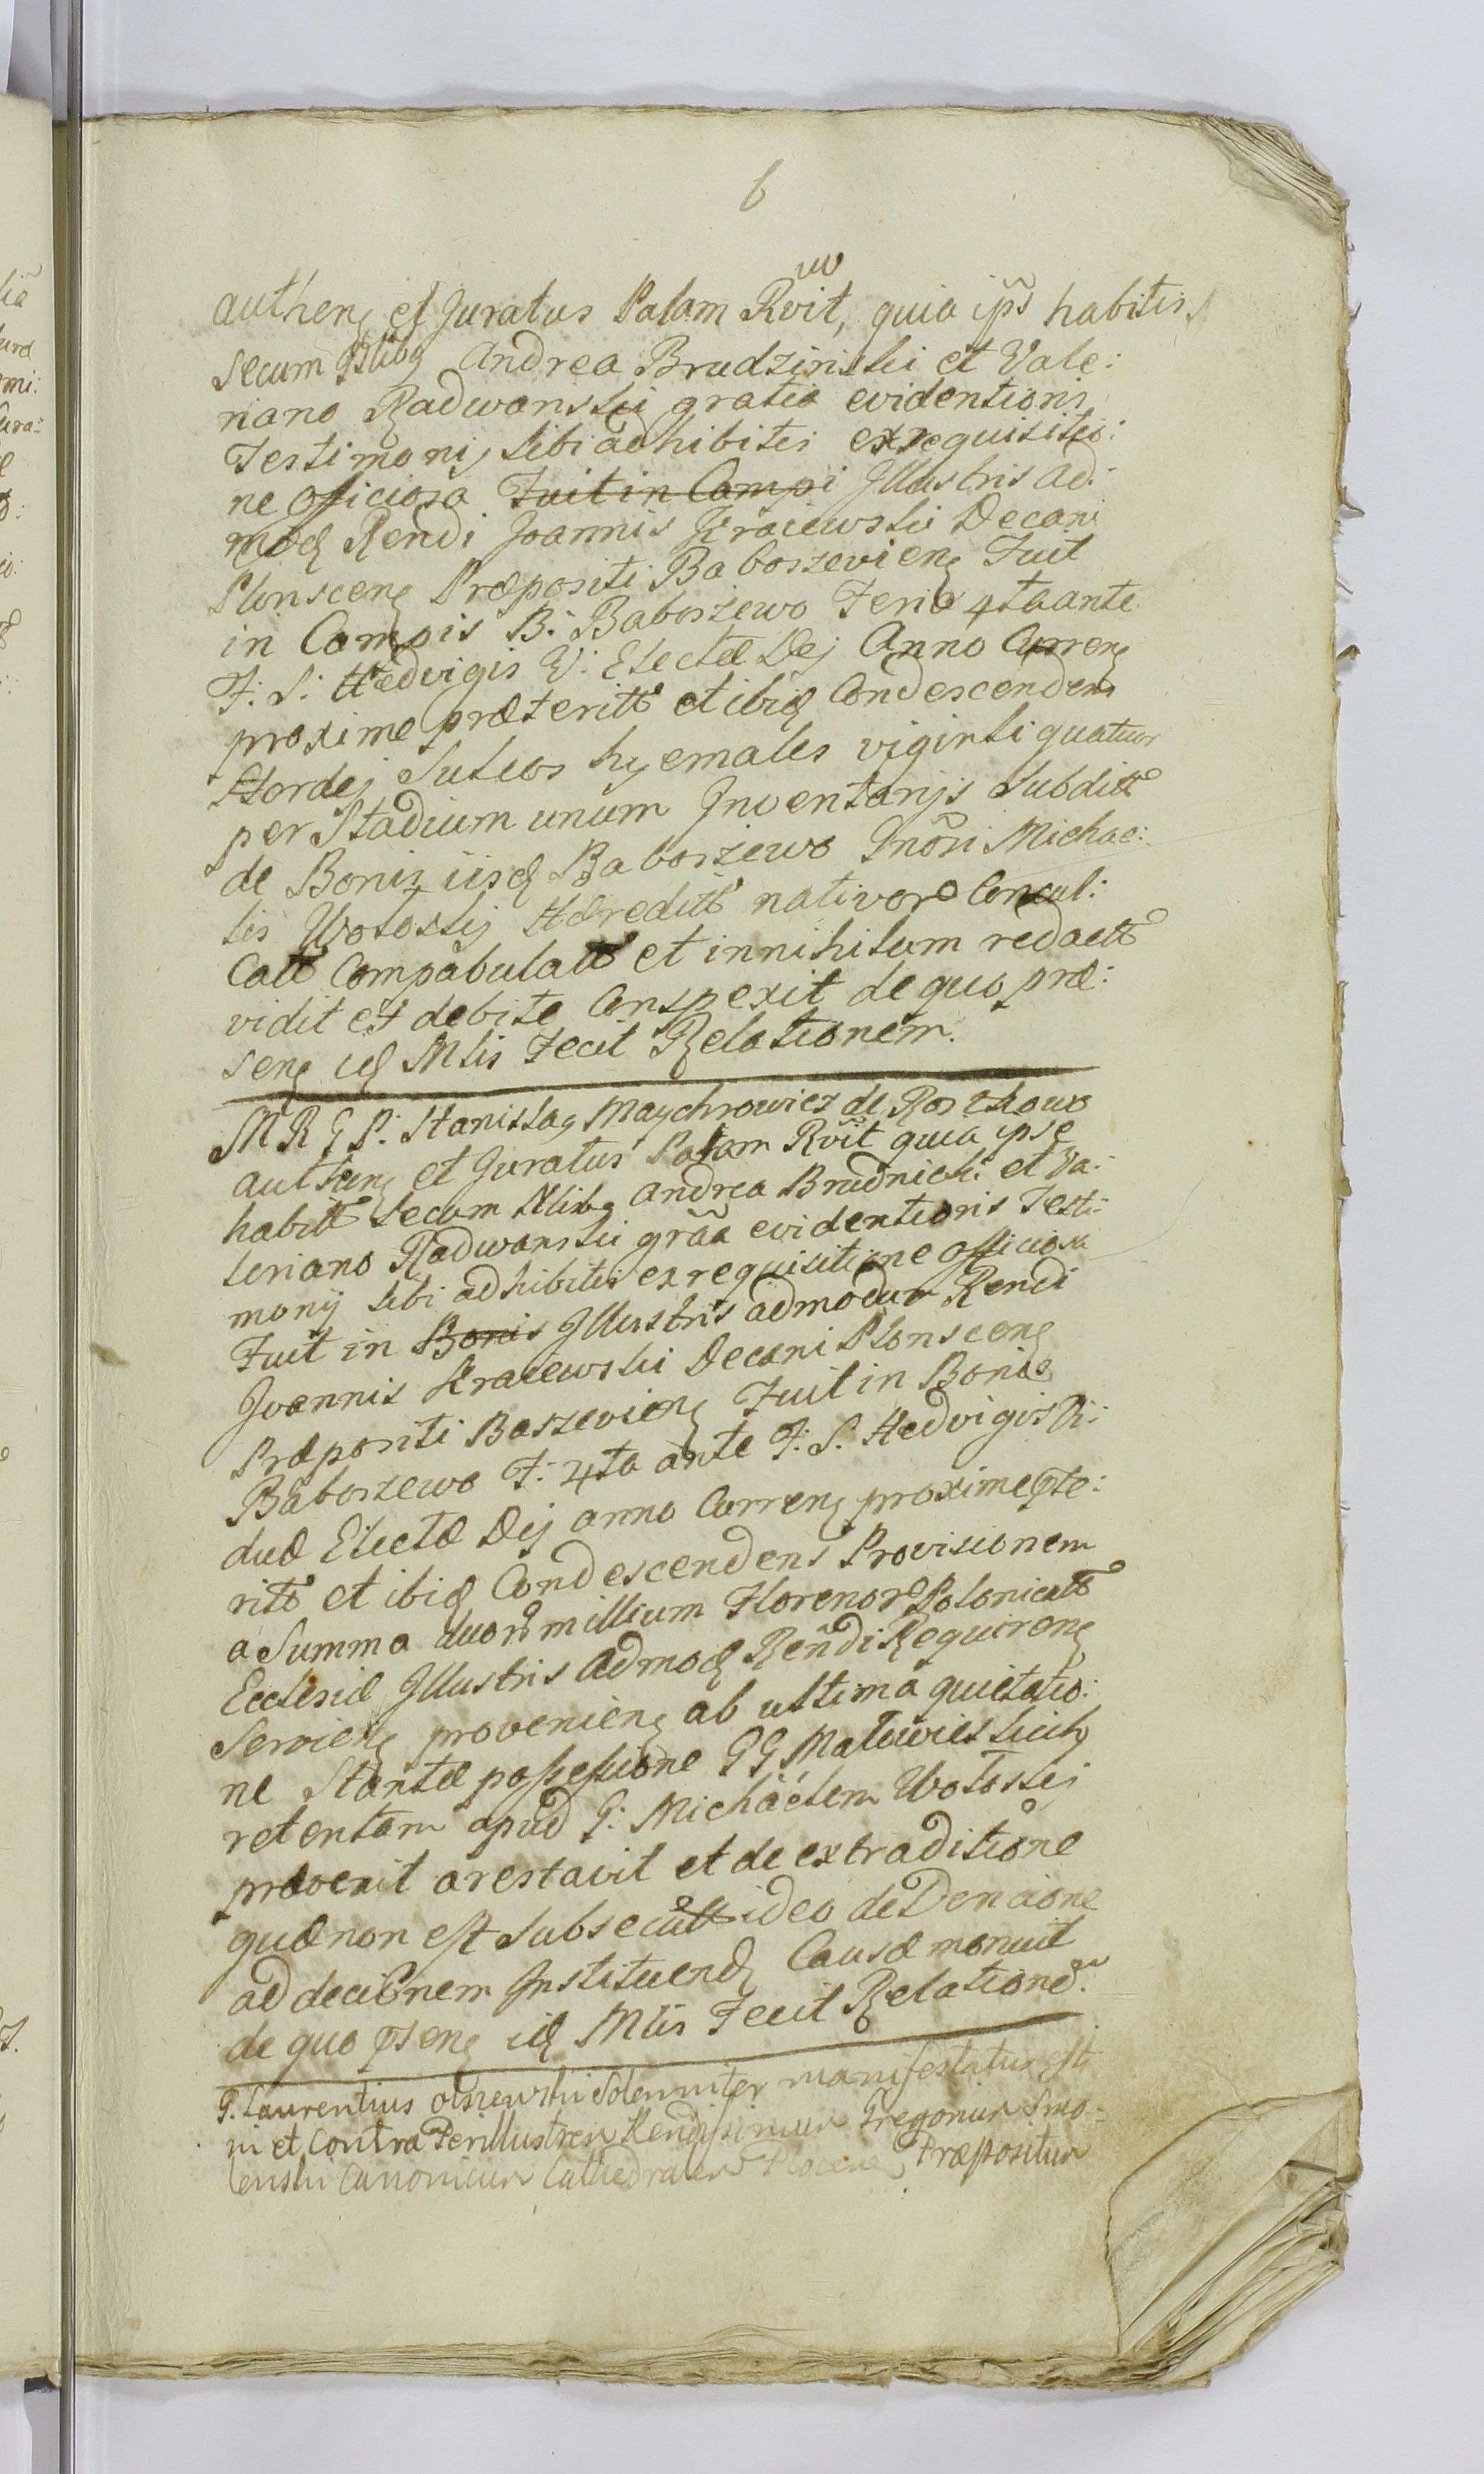 6
authen et Juratus Palam Rvit, quia ips habitis
secum Nlibg Andrea Brudzinski et Vale:
riano Radwanski gratia evidentioris
Testimonij sibi adhibitis ex requisitio:
ne officiosa Fuit in Campi Illustris ad:
modq Rendi Joannis Kraiewski Decani
Plonsceng Præpositi Baboszevieng Fuit
in Campis B: Baboszewo Feria 4ta ante
F: S: Hedvigis V: Electæ Dej Anno Curreng
proxime præteritt et ibiq Condescendens
Hordej Sulcos hyemales viginti quatuor
per Stadium unum Inventarijs Subditt
de Bonis iisdq Baboszewo Gnosi Michae:
lis Wołoskij Hæreditt nativor Concul:
catt Compabulatt et in nihilum redactt
vidit et debite Conspexit de quo præ:
seng idq Mlis Fecit Relationem.
M R G P: Stanislag Maychrowicz de Roszkowo
autteng et Juratus Palam Rvit quia ipse
habitt Secum Nlibg Andrea Brudnicki et Va:
leriano Radwanski grãa evidentioris Testi:
monij sibi adhibitis ex requisitione officiosa
Fuit in Bonis Illustris admodum Rendi
Joannis Kraiewski Decani Plonsceng
Præpositi Baszevieng Fuit in Bonis
Baboszewo F: 4ta ante F: S: Hedvigis Vi:
duæ Electæ Dej anno Curreng proxime pte:
ritt et ibiq Condescendens Provisionem
a Summa duor millium Florenor Polonicatt
Ecclesiæ Illustris Admodq Rendi Requireng
Servieng provenieng ab ultima quietatio:
ne Stante possessione GG Malewieskich
retentam apud G: Michaelem Wołoskij
prævenit arestavit et de extraditione
quæ non est Subsecutt ideo de
ad decisionem Instituend Causæ monuit
de quo pseng idq Mlis Fecit Relatione.
G. Laurentius Olszewski Solenniter manifestatus est
in et contra Perillustrem Rendissimum Gregorium Smo-
lenski Canonicum Cathedralem Præpositum